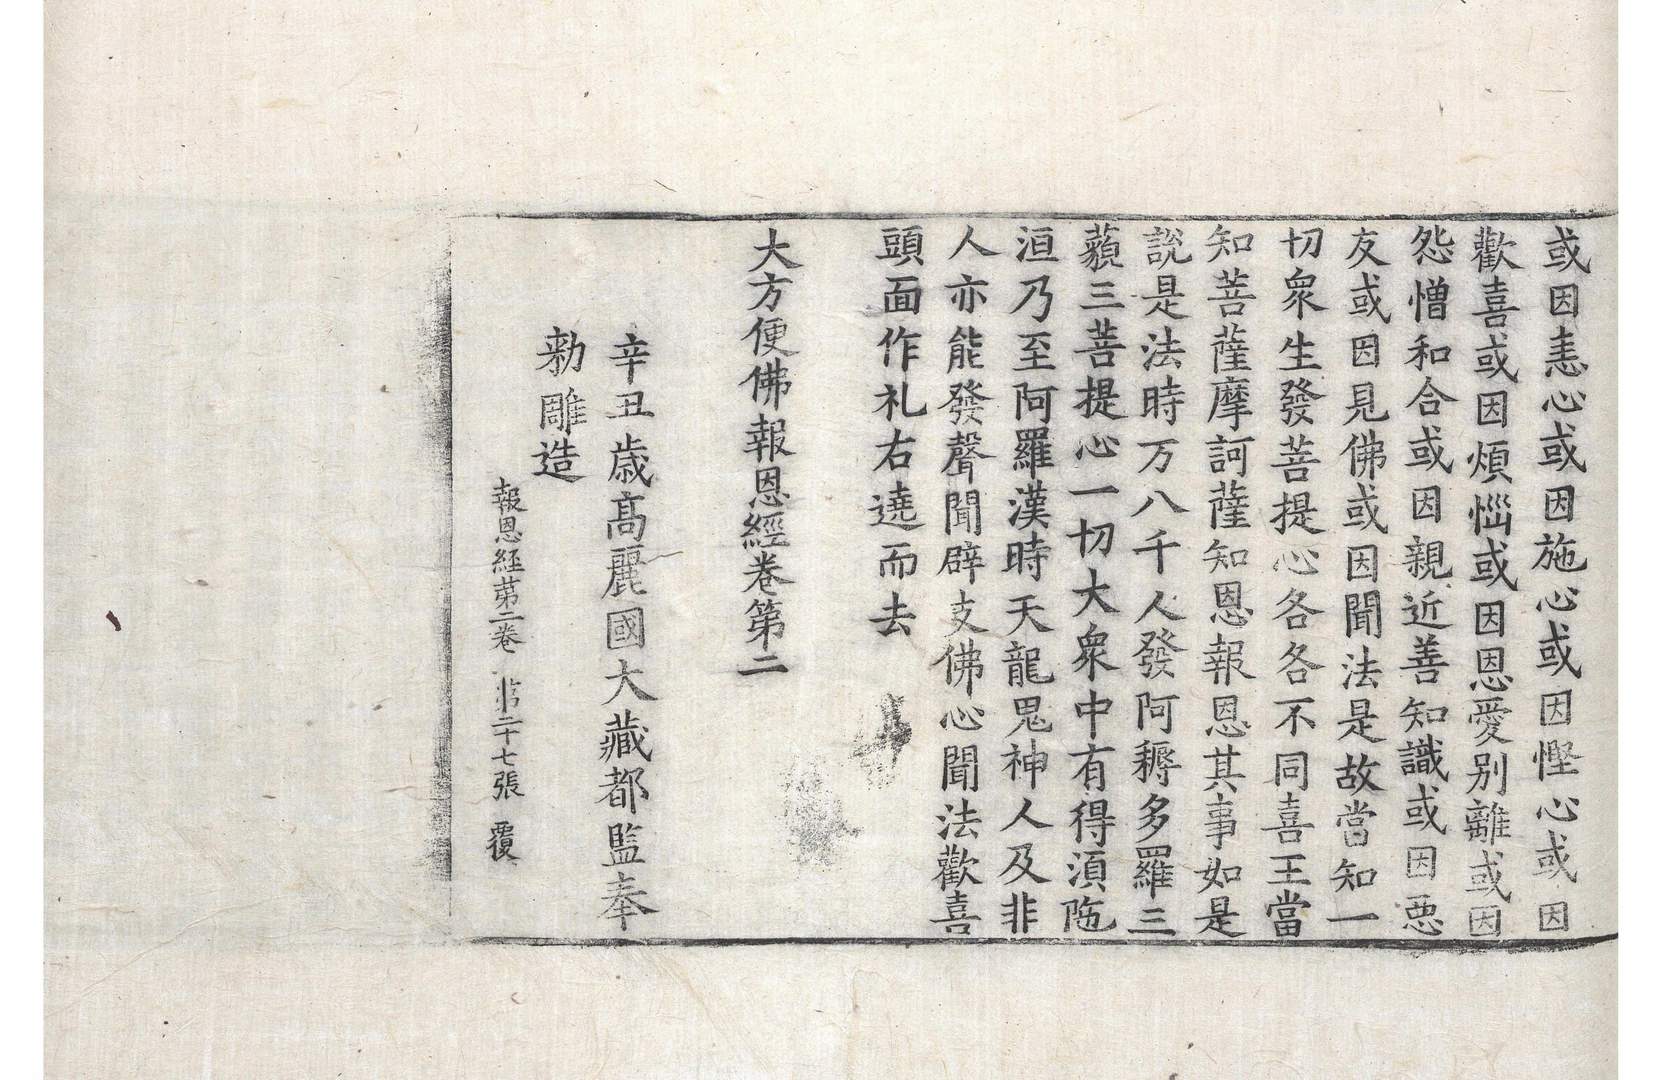 或因恚心或因施心或因慳心或因
歡喜或因煩惱或因恩愛別離或因
怨憎和合或因親近善知識或因惡
友或因見佛或因聞法是故當知一
切衆生發菩提心各各不同喜王當
知菩薩摩訶薩知恩報恩其事如是
說是法時万八千人發阿耨多羅三
藐三菩提心一切大衆中有得湏陁
洹乃至阿羅漢時天龍鬼神人及非
人亦能發聲聞辟支佛心聞法歡喜
頭面作礼右遶而去
大方便佛報恩經卷第二
辛丑歲高麗國大藏都監奉
勅雕造
報恩経苐二卷 苐二十七張 覆